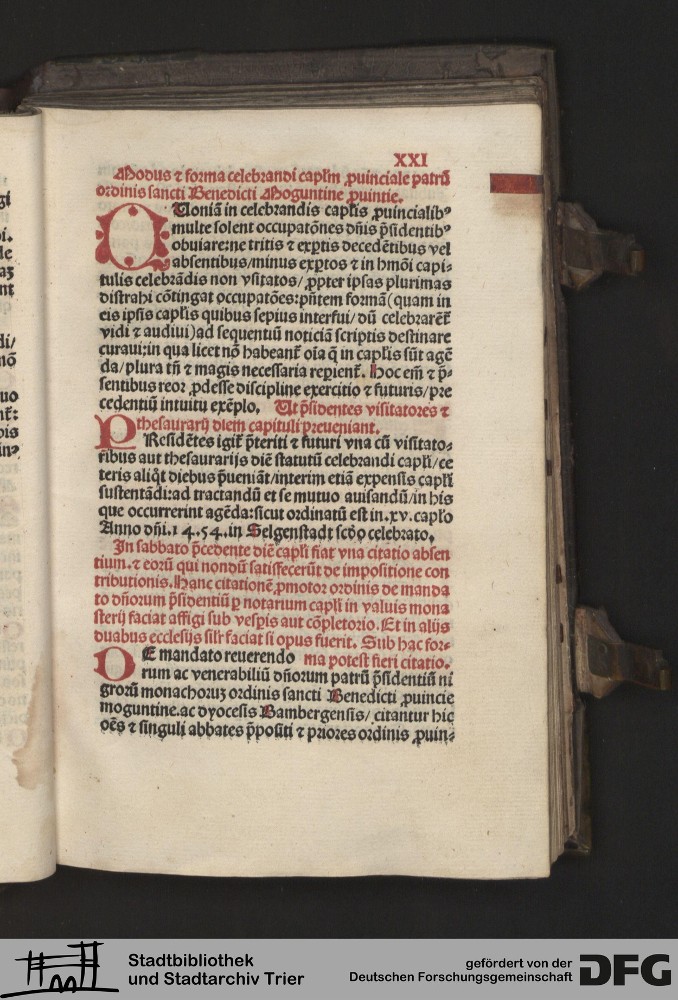 XXI
Modus ⁊ forma celebrandi capl'm ꝓuinciale patrū
ordinis sancti Benedicti Moguntine ꝓuintie.
QUoniā in celebrandis capl'is ꝓuincialibꝰ
multe solent occupatōnes dn̄is p̄sidentibꝰ
obuiare: ne tritis ⁊ exꝑtis decedētibus vel
absentibus/ minus exꝑtos ⁊ in hmōi capi-
tulis celebrādis non vsitatos/ ꝓpter ipsas plurimas
distrahi cōtingat occupatōes: pn̄tem formā (quam in
eis ipsis capl'is quibus sepius interfui/ dū celebrarēt̄
vidi ⁊ audiui) ad sequentiū noticiā scriptis destinare
curaui: in qua licet nō habeant̄ oīa q̄ in capl'is sūt agē
da/ plura tn̄ ⁊ magis necessaria reꝑient̄. Hoc em̄ ⁊ p̄-
sentibus reor ꝓdesse discipline exercitio ⁊ futuris/ pre
cedentiū intuitu exēplo. Ut p̄sidentes visitatores ⁊
thesaurarij diem capituli preueniant.
PResidētes igit̄ p̄teriti ⁊ futuri vna cū visitato-
ribus aut thesaurarijs diē statutū celebrandi capl'i/ ce
teris aliq̄t diebus p̄ueniāt/ interim etiā expensis capl'i
sustentādi: ad tractandū et se mutuo auisandū/ in his
que occurrerint agēda: sicut ordinatū est in .xv. capl'o
Anno dn̄i. 1 4 . 5 4 . in Selgenstadt scd̄o celebrato.
In sabbato p̄cedente diē capl'i fiat vna citatio absen
tium. ⁊ eorū qui nondū satisfecerūt de impositione con
tributionis. Hanc citationē ꝓmotor ordinis de manda
to dn̄orum p̄sidentiū ꝑ notarium capl'i in valuis mona
sterij faciat affigi sub vesꝑis aut cōpletorio. Et in alijs
duabus ecclesijs sil'r faciat si opus fuerit. Sub hac for-
DE mandato reuerendo ma potest fieri citatio.
rum ac venerabiliū dn̄orum patrū p̄sidentiū ni
grorū monachoruꝫ ordinis sancti Benedicti ꝓuincie
moguntine. ac dyocesis Bambergensis/ citantur hic
oēs ⁊ singuli abbates p̄positi ⁊ priores ordinis ꝓuin-
Stadtbibliothek
und Stadtarchiv Trier
gefördert von der
Deutschen Forschungsgemeinschaft
DFG